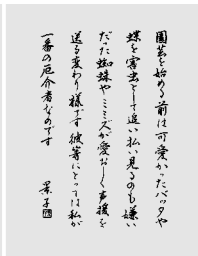 園芸を始める前は可愛かったバッタや
蝶を害虫として追い払い見るのも嫌い
だった蜘蛛やミミズが愛おしく声援を
送る変わり様です彼等にとっては私が
一番の厄介者なのです
景子